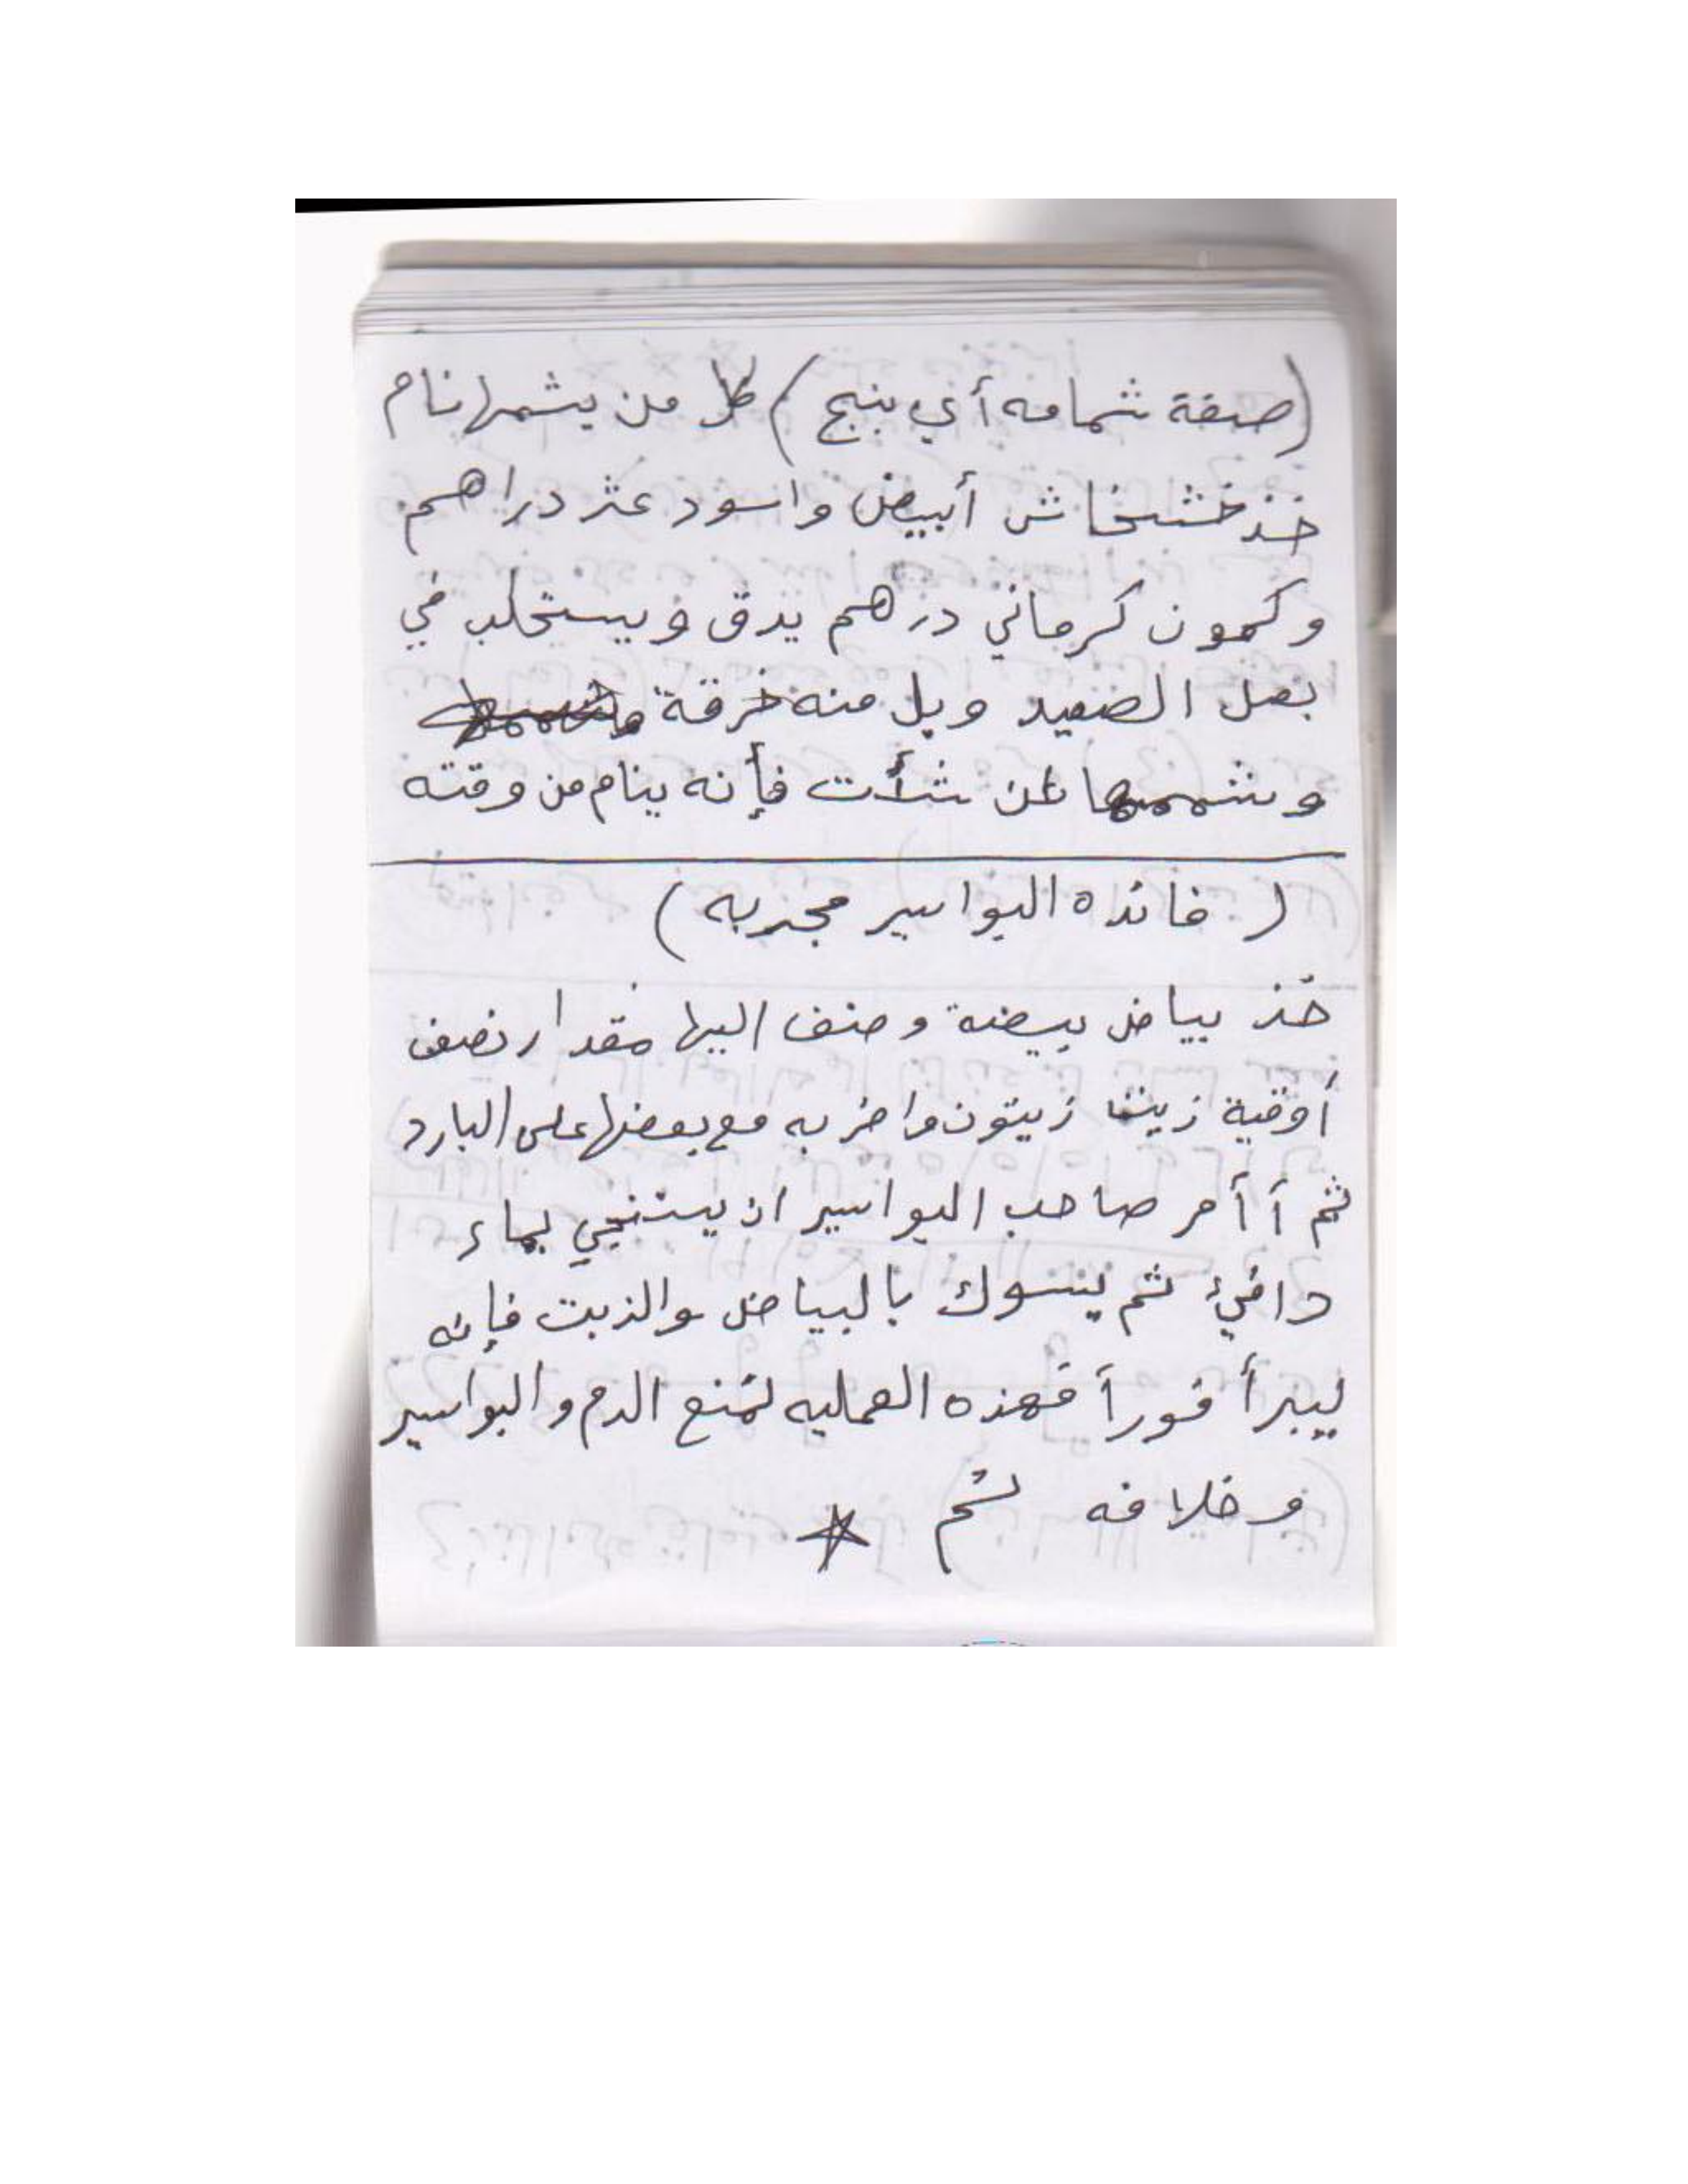 (صفة شمامه أي بنج) كل من يشمها نام
خذ خشخاش أبيض واسود عشر دراهم
وكمون كرماني درهم يدق ويستحلب في
بصل الصعيد وبل منه خرقة
وشممها لمن شأت فإنه ينام من وقته
( فائده البواسير مجربه )
خذ بياض بيضة وضف اليها مقدار نصف
أوقية زيت زيتون واضربه مع بعضها على البارد
ثم أ أمر صاحب البواسير ان يستنجي بماء
دافيء ثم يسوك بالبياض والزيت فإنه
ليبرأ فوراً فهذه العمليه تمنع الدم والبواسير
وخلافه تم